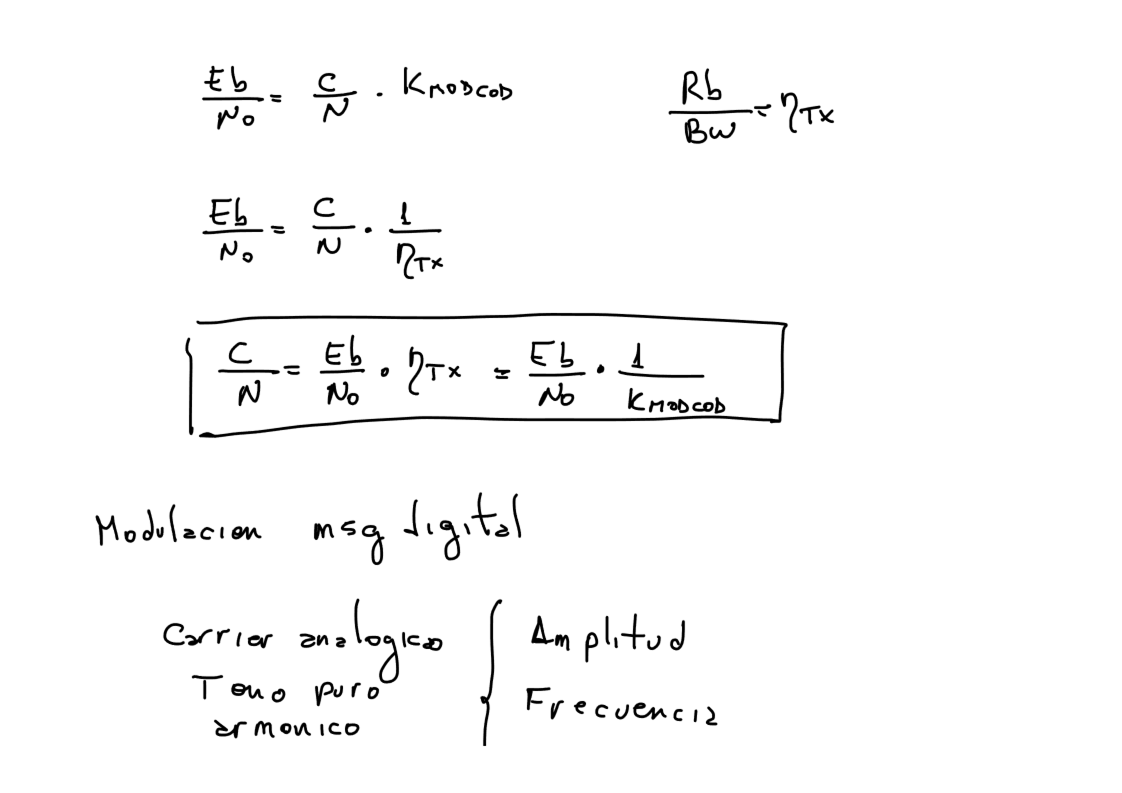 Eb/No = C/N · KMODCOD
Rb/BW = ηTx
Eb/No = C/N · 1/ηTx
C/N = Eb/No · ηTx = Eb/No · 1/KMODCOD
Modulacion msg digital
Carrier analogico { Amplitud
Tono puro
armonico
Frecuencia